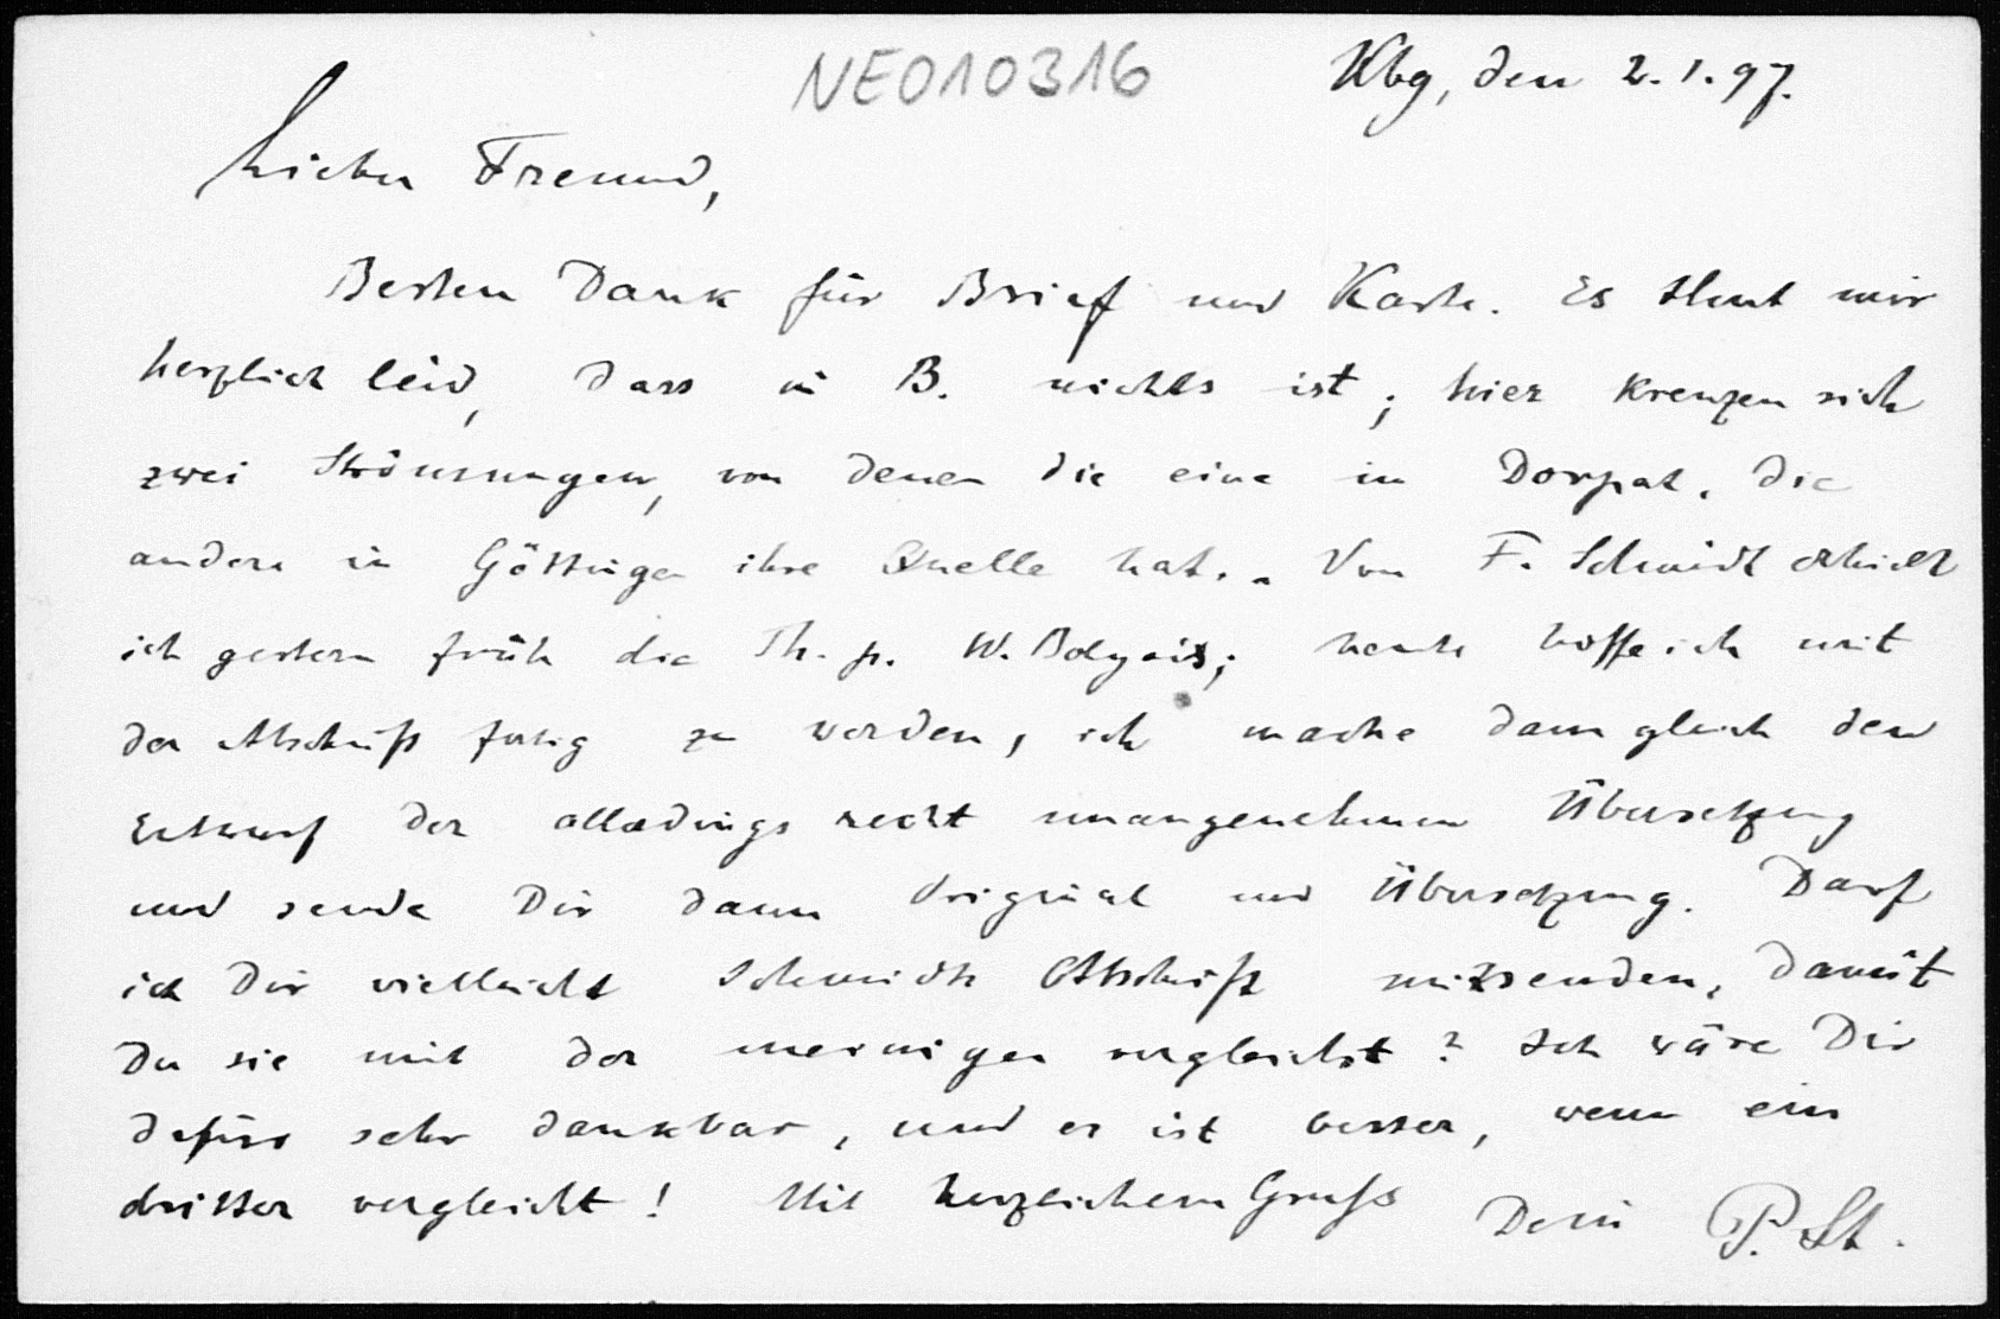 NE010316
Kbg, den 2.1.97.
Lieber Freund,
Besten Dank für Brief und Karte. Es thut mir
herzlich leid, dass in B. nichts ist; hier kreuzen sich
zwei Strömungen, von denen die eine in Dorpat, die
andere in Göttingen ihre Quelle hat. - Von F. Schmidt erhielt
ich gestern früh die Th. p. W. Bolyais; heute hoffe ich mit
der Abschrift fertig zu werden, ich mache dann gleich den
Entwurf der allerdings recht unangenehmen Übersetzung
und sende Dir dann Original und Übersetzung. Darf
ich Dir vielleicht Schmidts Abschrift mitsenden, damit
Du sie mit der meinigen vergleichst? Ich wäre Dir
dafür sehr dankbar, und es ist besser, wenn ein
dritter vergleicht! Mit herzlichem Gruß Dein P. St.